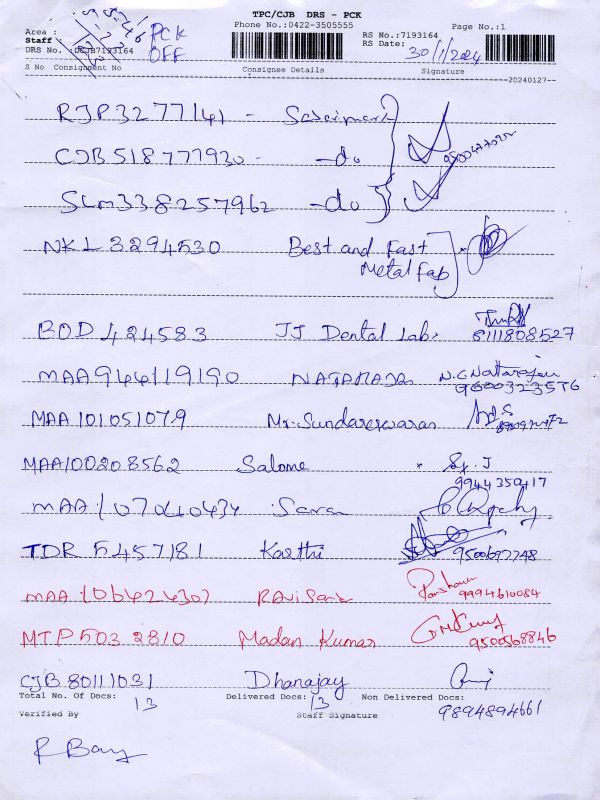 TPC/CJB DRS - PCK
Phone No.:0422-3505555
Page No.:1
Area : PCK
Staff : OFF
RS No.:7193164
RS Date: 30/1/2024
DRS No. CJB7193164
S No Consignment No Consignee Details Signature
--20240127--
RJP3277141 -
CJB518777930 - -do
SLM338257962 -do
NKL3294530 Best and Fast
Metal Fab
BOD424583 JJ Dental Lab.
8111808527
MAA944119190 NATARAJA N.C.Natarajan
9600323576
MAA101051079 Mr. Sundareswaran
MAA100208562 Salome
9944350417
Saran
TDR 5457181 Karthi
MAA 106424302
9994610084
MTP503 2810 Madan Kumar
9500568846
CJB80111031 Dhanajay
Total No. Of Docs: 13 Delivered Docs: 13 Non Delivered Docs:
Verified By Staff Signature 9894894661